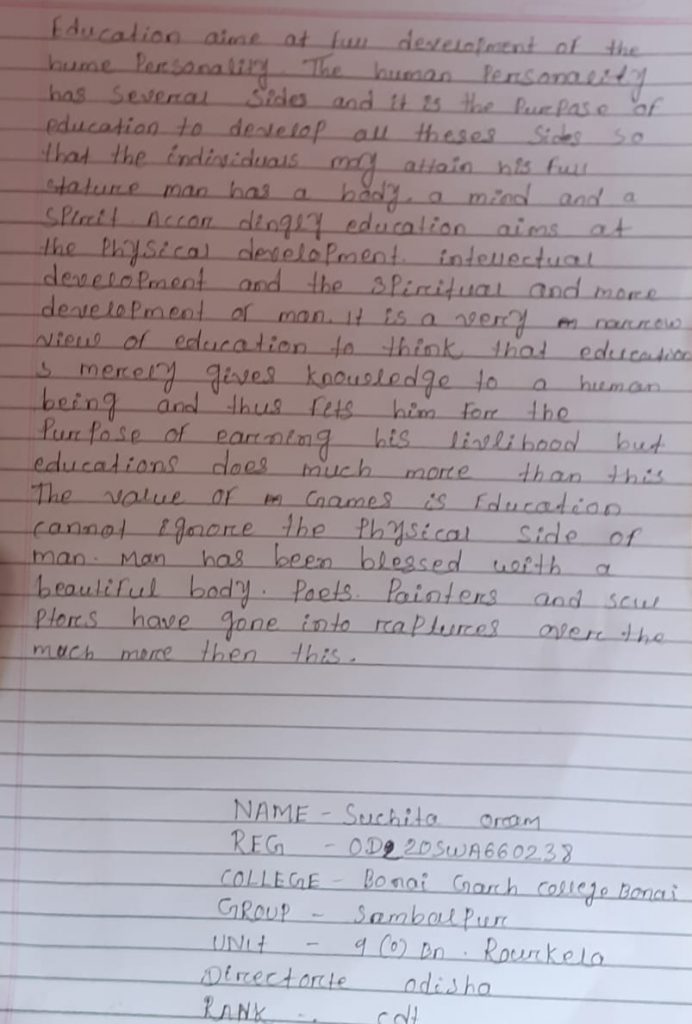 Education aime at full development of the
hume Personality. The human Personality
has Several Sides and it is the Purpase of
education to develop all theses Sides so
that the individuals may attain his full
stature man has a body. a mind and a
Spirit. Accor dingly education aims at
the Physical development. intellectual
development and the Spiritual and more
development of man. it is a very narrow
view of education to think that education
s merely gives knowledge to a human
being and thus fets him for the
Purpose of earning his livelihood but
educations does much more than this
The value of m Games is Education
cannot ignore the Physical side of
man. Man has been blessed with a
beautiful body. Poets. Painters and scul
Ptors have gone into raptures over the
mach more then this.
NAME - Suchita oram
REG - OD20SWA660238
COLLEGE - Bonai Garh college Bonai
GROUP - Sambalpur
UNIt - 9 (o) Bn. Rourkela
Directorte odisha
RANK - cdt